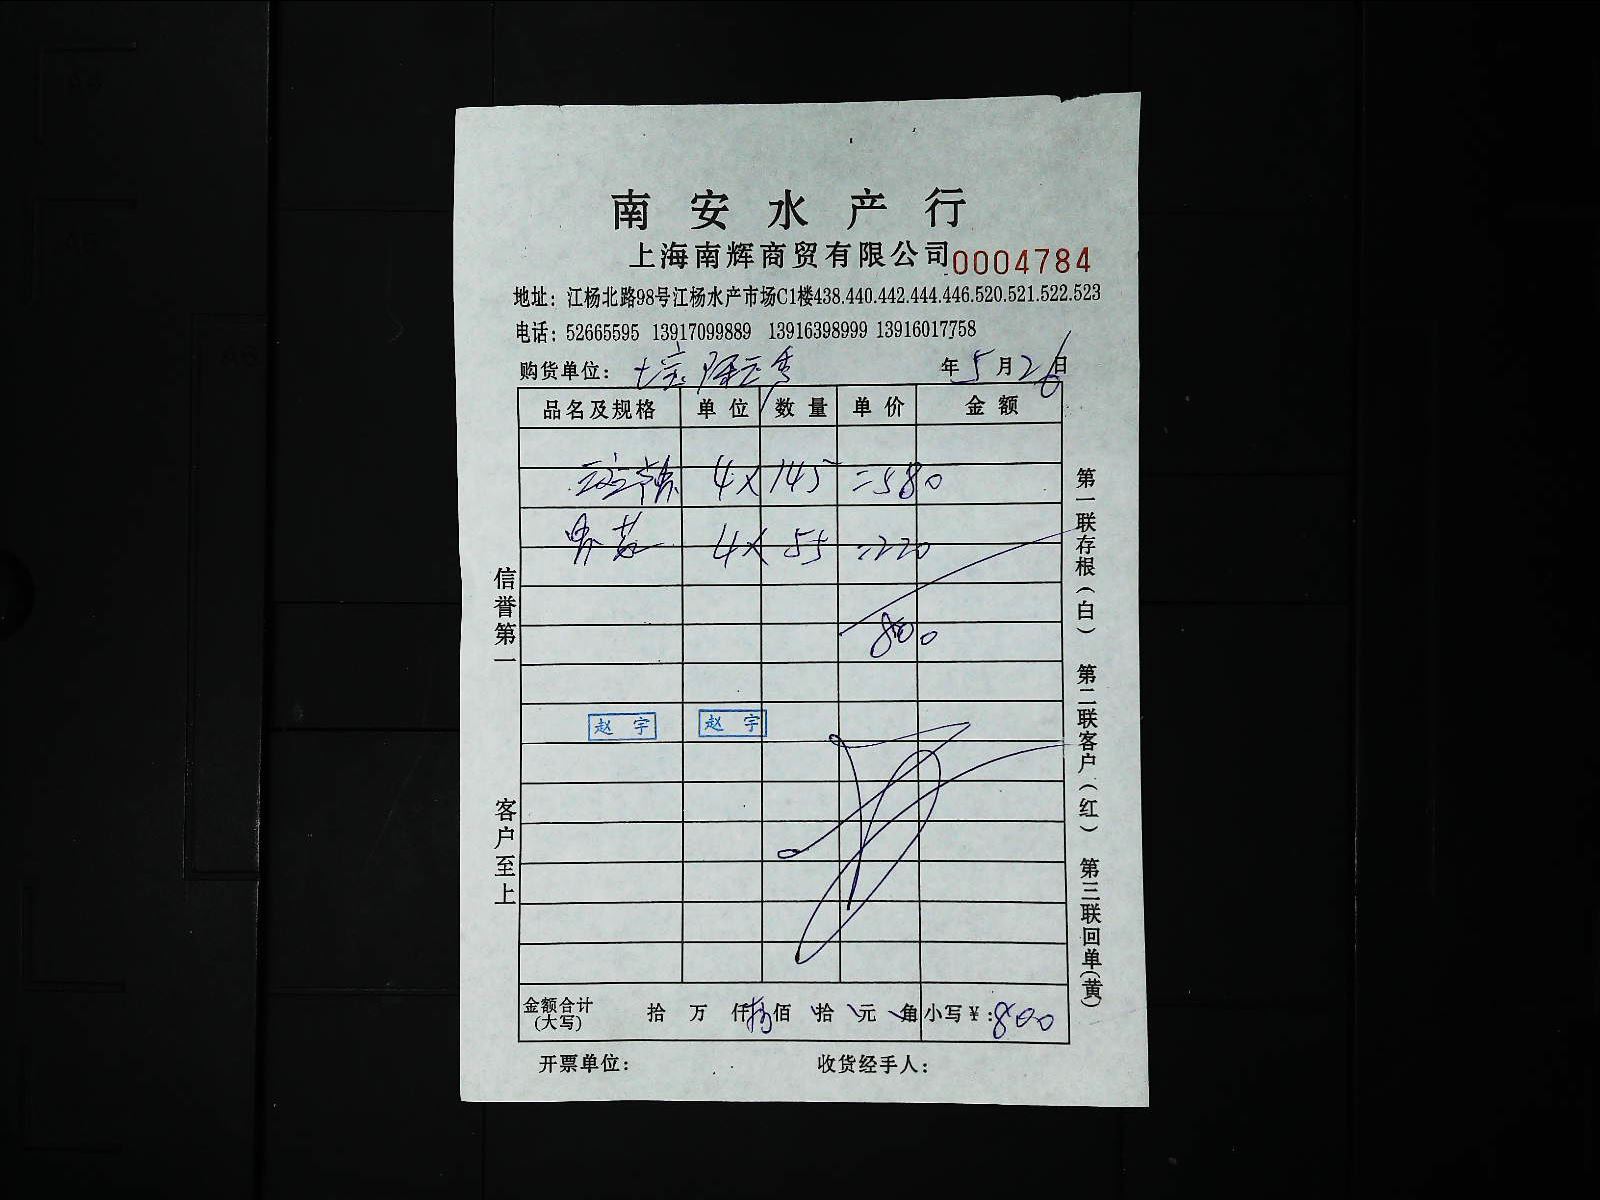 南安水产行
上海南辉商贸有限公司 0004784
地址：江杨北路98号江杨水产市场C1楼438.440.442.444.446.520.521.522.523
电话：52665595 13917099889 13916398999 13916017758
购货单位： 年5月26日
品名及规格 单位 数量 单价 金额
4×145=580
4×55=220
800
赵宇 赵宇
金额合计(大写) 拾 万 仟 捌佰 拾 元 角 小写￥:800
开票单位： 收货经手人：
信誉第一
客户至上
第一联存根(白) 第二联客户(红) 第三联回单(黄)